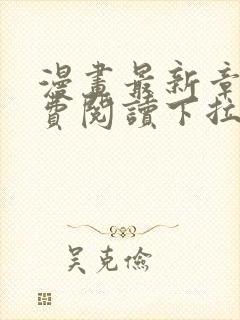 漫畫最新章
費閱讀下拉
吳克儉